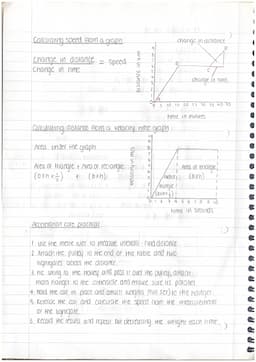 Calculating speed from a graph
change in distance
change in distance = speed
change in time
change in time
time in minutes
Calculating distance from a velocity time graph
Area under the graph
Area of triangle + Area of rectangle
(b×h×½) + (b×h)
Area of rectangle
(b×h)
triangle
time in seconds
Acceleration core practical
1. Use the metre ruler to measure intervals. Find distance.
2. Attach the pulley to the end of the table and two
lightgates across the distance.
3. Tie string to the trolley and pass it over the pulley, attach
mass hanger to the other side and make sure its parallel
4. Hold the car in place and attach weights to the hanger.
5. Release the car and calculate the speed from the measurements
of the lightgate.
6. Record the results and repeat but decreasing the weight each time.